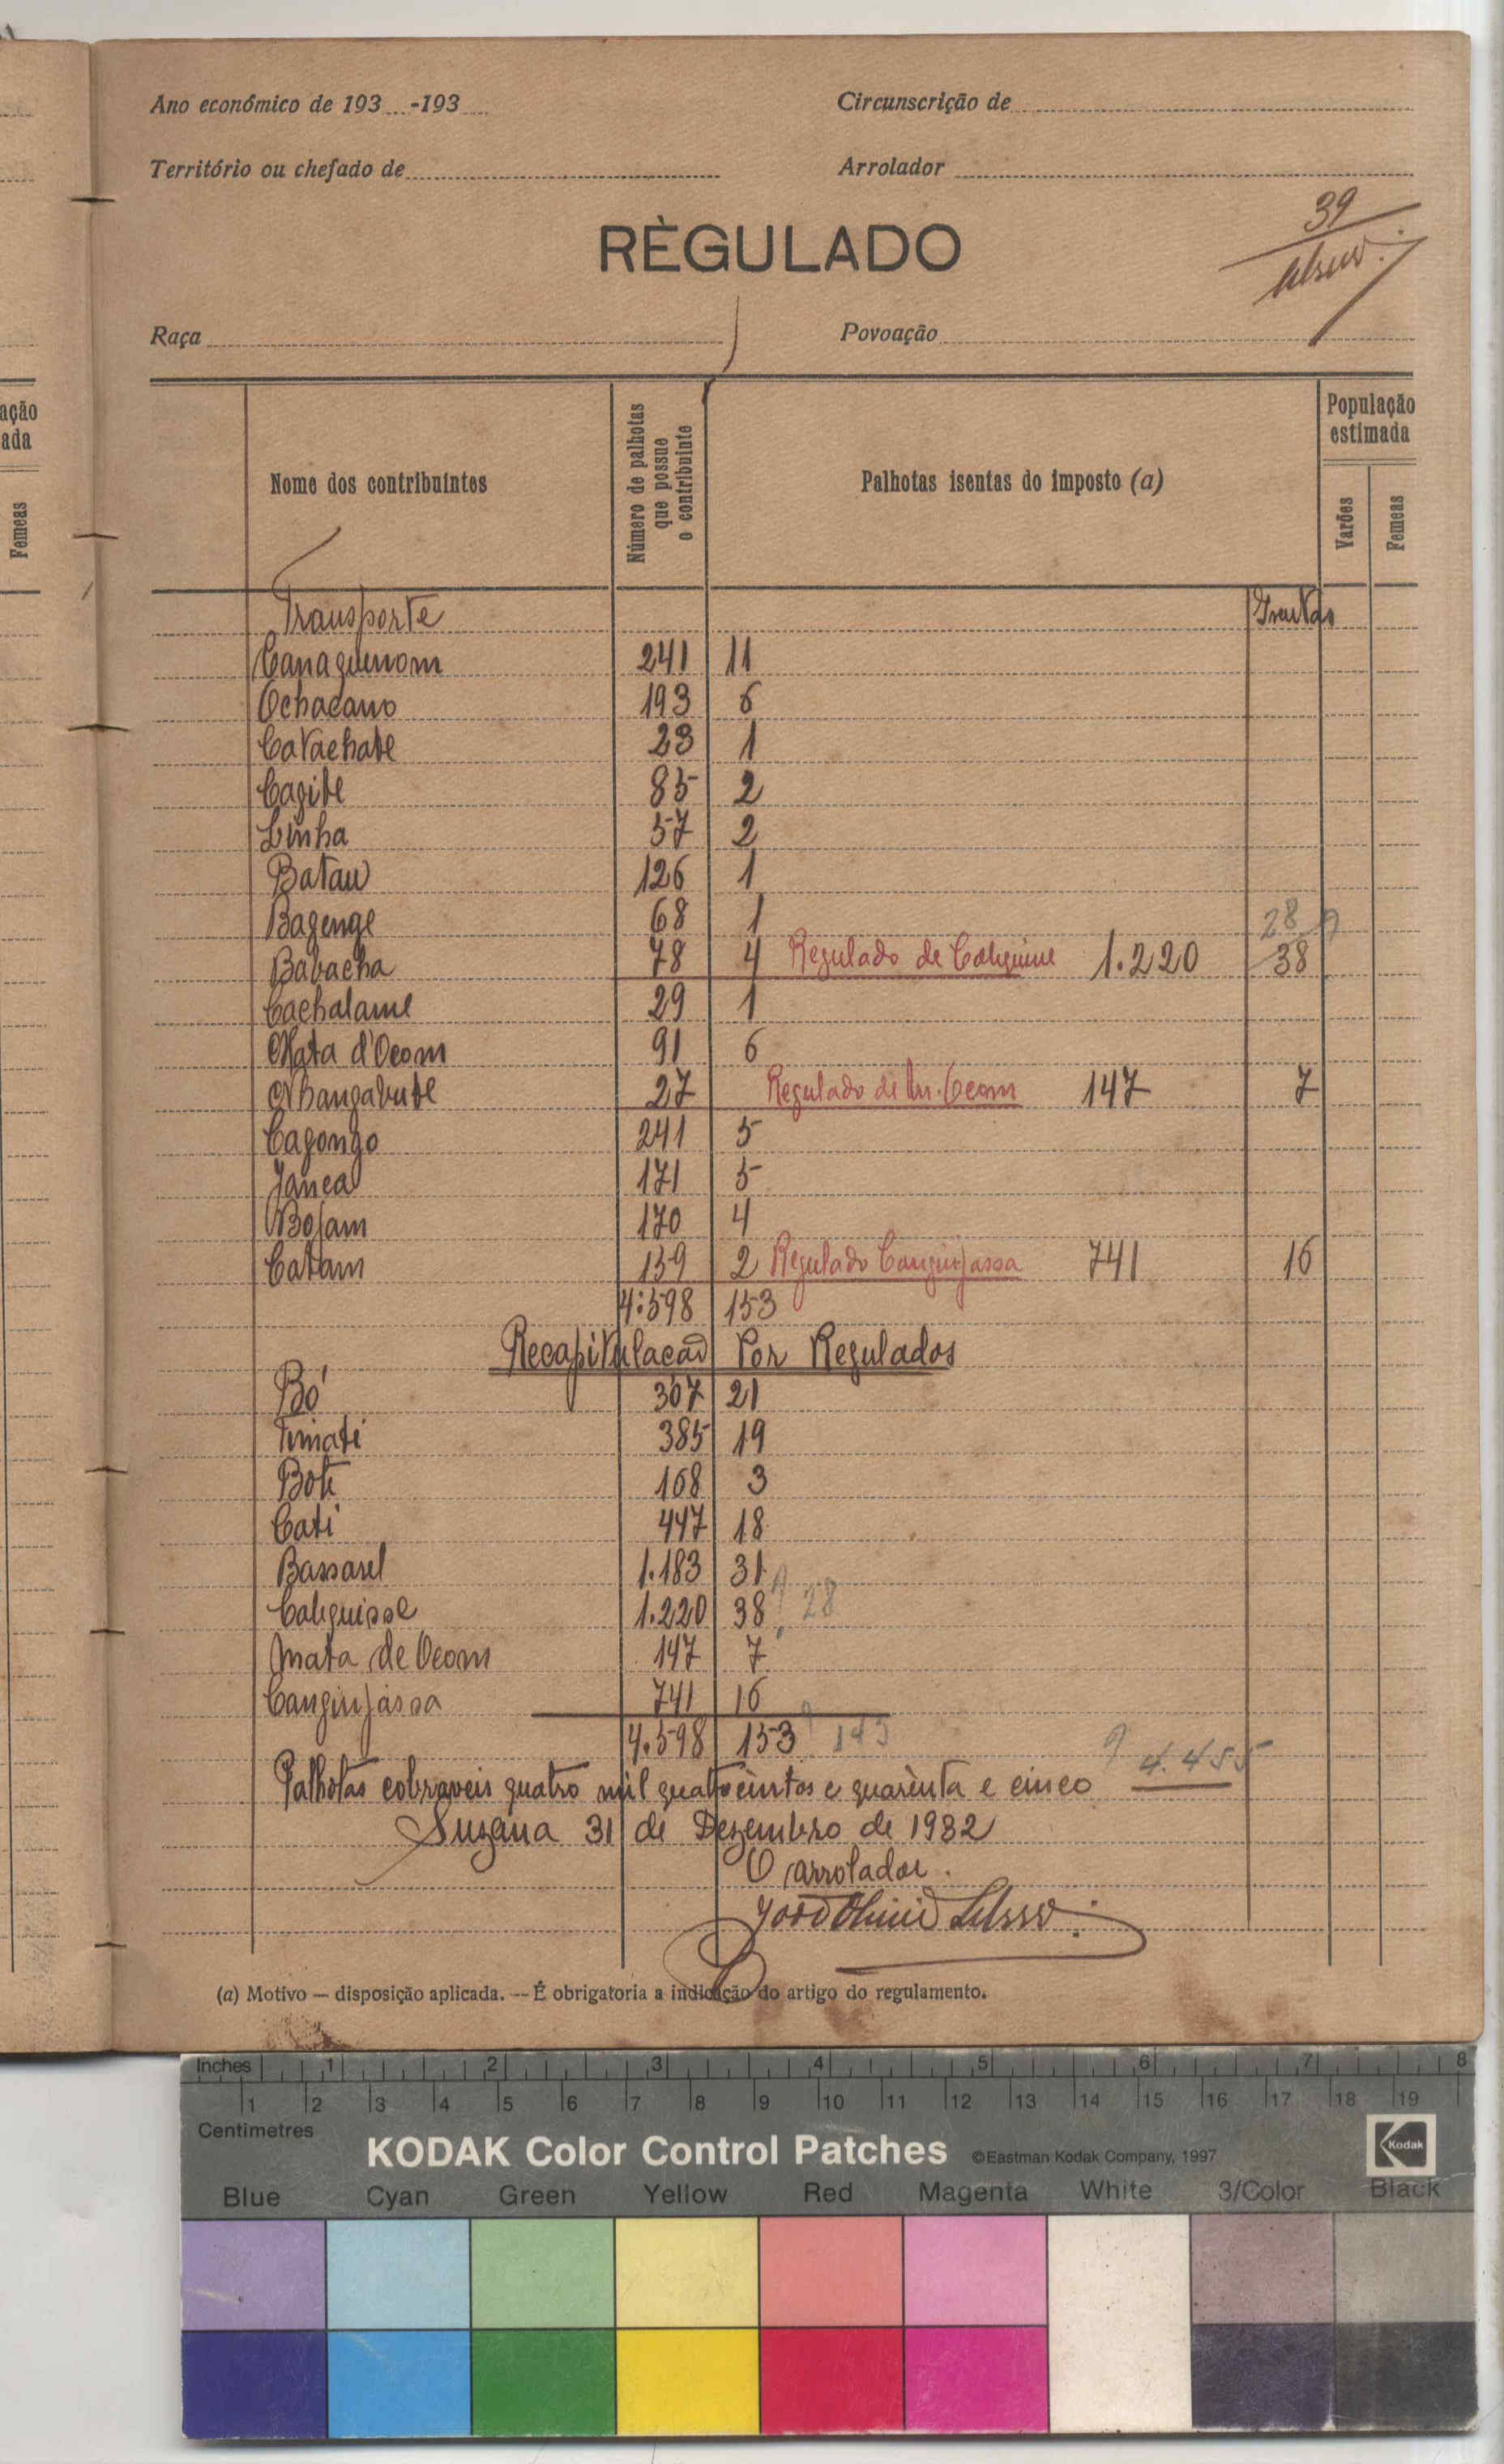 Ano económico de 193 -193
Circunscrição de
Território ou chefado de
Arrolador
39
RÈGULADO
Raça
Povoação
ação
ada
Femeas
Nome dos contribuintes
Número de palhotas
que possue
o contribuinte
Palhotas isentas do imposto (a)
População
estimada
Varões
Femeas
Transporte
241 11
193 6
23 1
Cagite 85 2
Linha 57 2
Batau 126 1
28
Bagenge 68 1
Babacha 78 4 Regulado de 1.220 38
Cachalame 29 1
Mata d'Ocom 91 6
27 Regulado de M. Ocom 147 7
Cagongo 241 5
Janca 171 5
Bojam 170 4
Catam 159 2 Regulado Canguijassa 741 16
4:598 153
Recapitulacão Por Regulados
Bó 307 21
Timati 385 19
Bote 168 3
Cati 447 18
Bassarel 1.183 31
Caliquisse 1.220 38 ? 28
Mata de Ocom 147 7
Canguijassa 741 16
4.598 153 ? 143
Palhotas cobraveis quatro mil quatrocintos e quarènta e cinco ? 4.455
Suzana 31 de Dezembro de 1932
O arrolador.
(a) Motivo — disposição aplicada. — É obrigatoria a indicação do artigo do regulamento.
Inches 1 2 3 4 5 6 7 8
1 2 3 4 5 6 7 8 9 10 11 12 13 14 15 16 17 18 19
Centimetres
KODAK Color Control Patches ©Eastman Kodak Company, 1997 Kodak
Blue Cyan Green Yellow Red Magenta White 3/Color Black